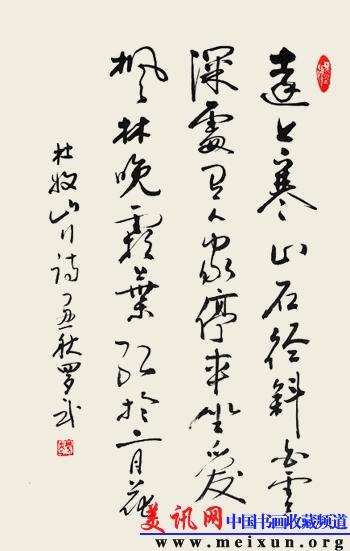 遠上寒山石径斜白雲
深處有人家停車坐愛
楓林晚霜葉紅於二月花
杜牧山行詩丁丑秋罗
美讯网 中国书画收藏频道
www.meixun.org